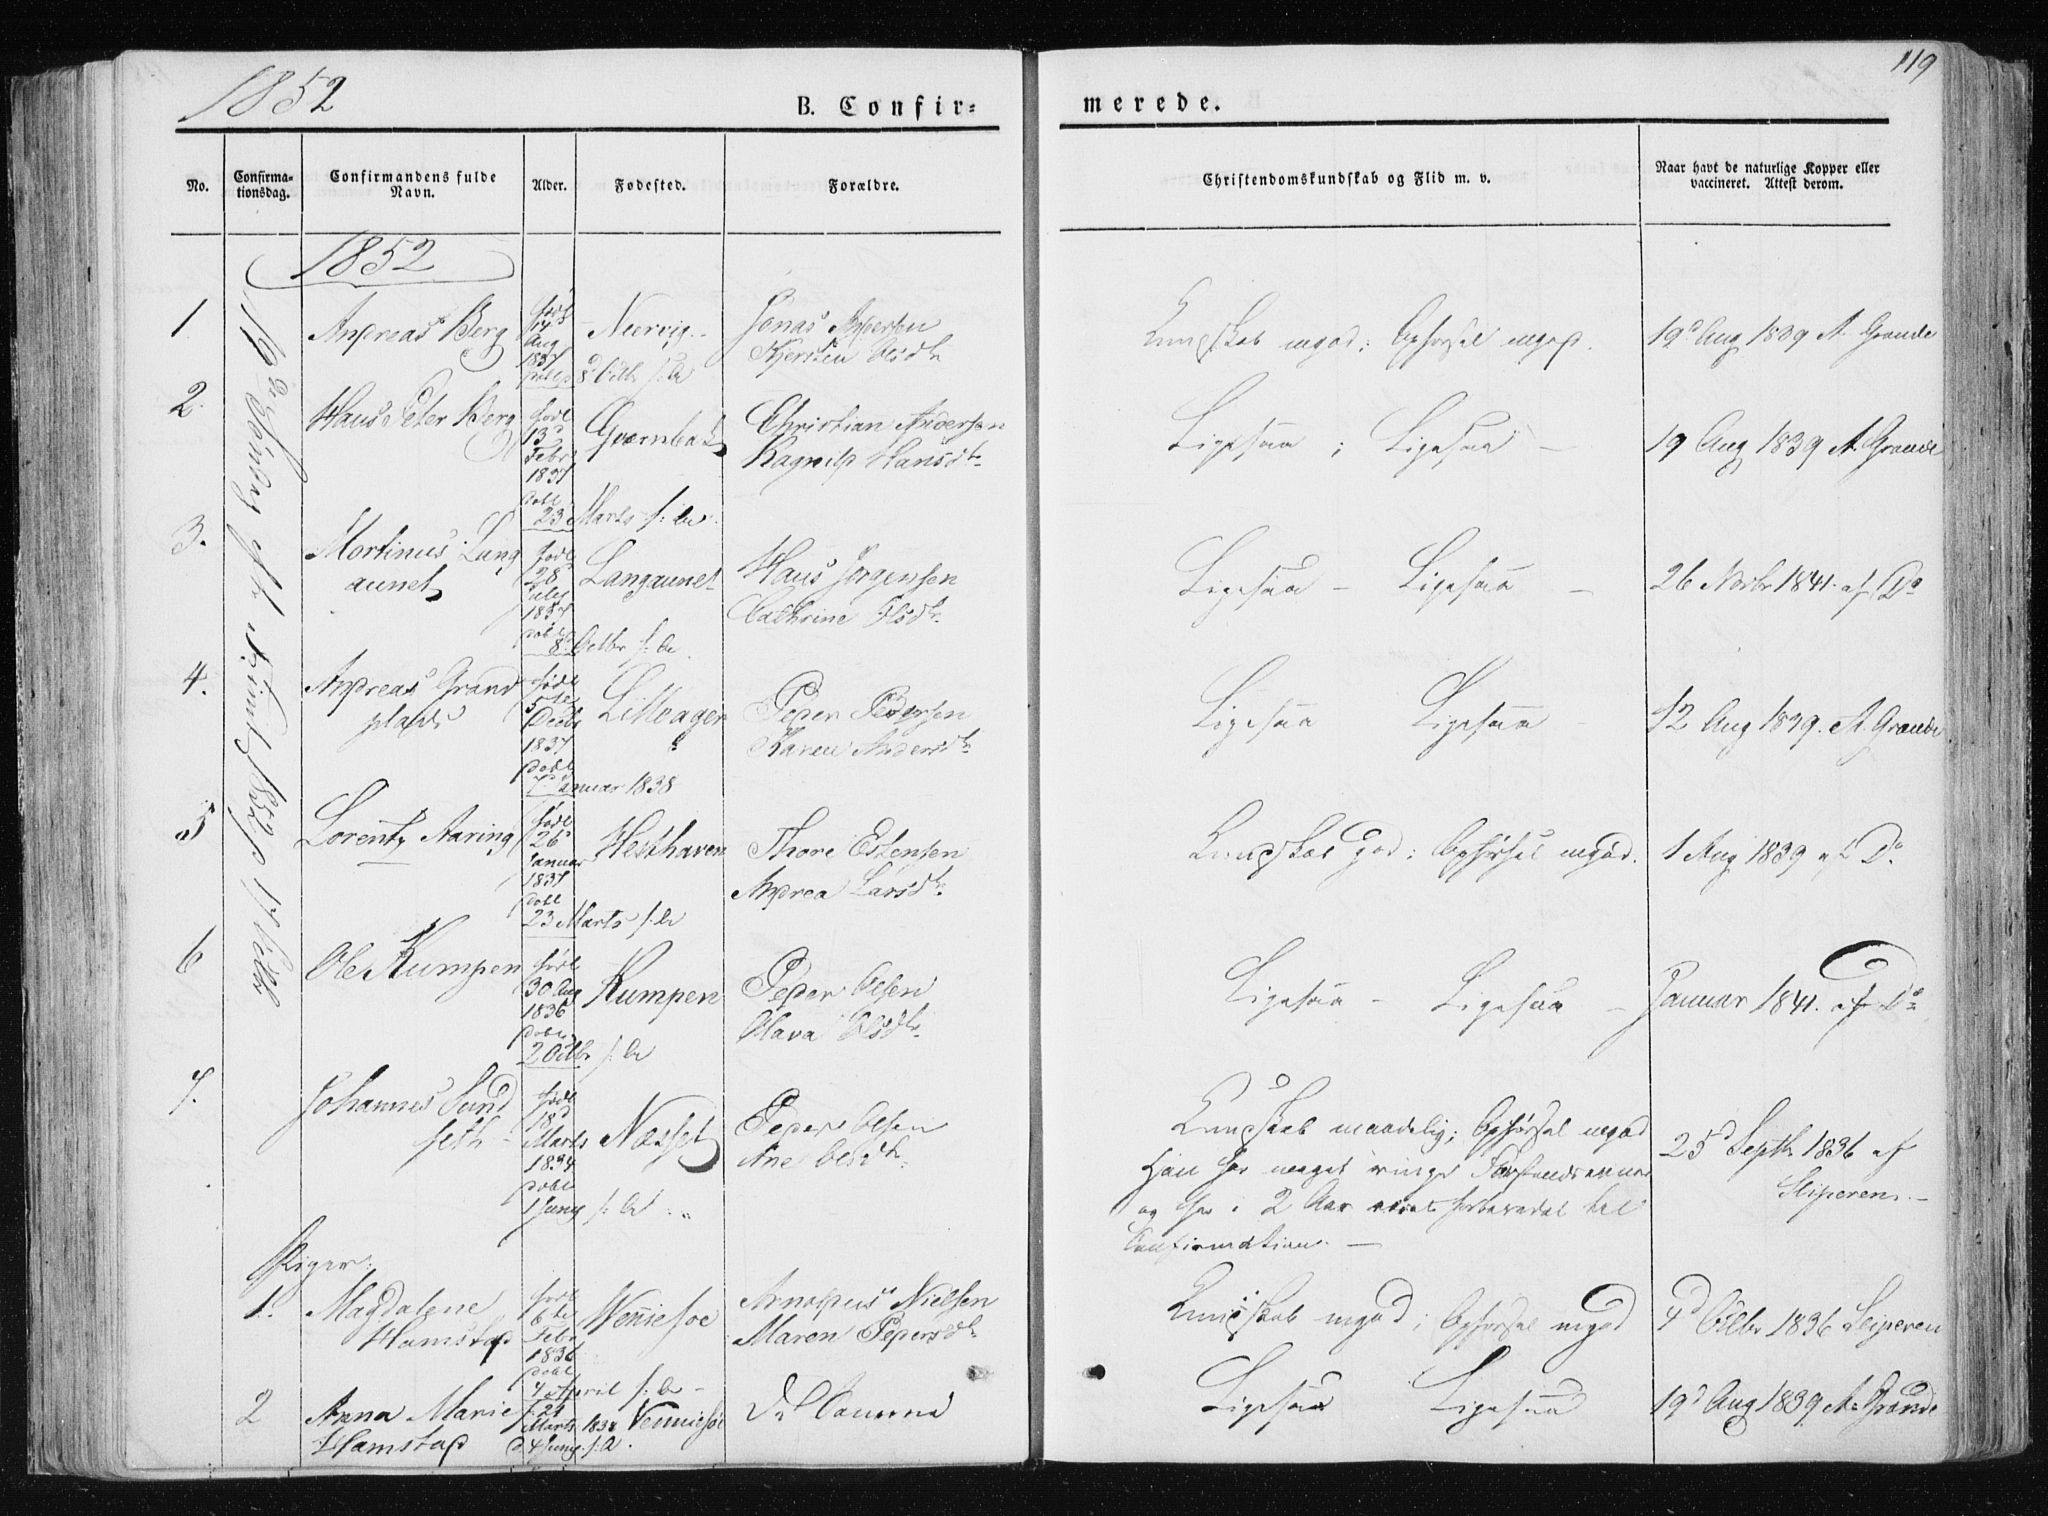 119
1852
B. Confir-
merede.
No.
Confirma-
tionsdag.
Confirmandens fulde
Navn.
Alder.
Fødested.
Forældre.
Christendomskundskab og Flid m. v.
Naar havt de naturlige Kopper eller
vaccineret. Attest derom.
1852
1
Andreas Berg
født
14
Aug
1837
8 Octbr
Jonas Andersen
Kjersten Olsdtr
Kundskab mgod; Opførsel mgod.
19d Aug 1839 A. Grande
2.
Hans Peter Berg
født
13d
Febr
1837
døbt
23 Marts
Christian Andersen
Ragnild Hansdtr
Ligesaa ; Ligesaa —
19 Aug 1839 A. Grande
3.
Martinus Lang
aunet
født
28d
1837
døbt
8 Octbr
Langaunet
Hans Jørgensen
Cathrine Olsdtr
Ligesaa — Ligesaa —
26 Novbr 1841. af Do
4.
Andreas Grand
plads
født
5te
Decbr
1837
døbt
7d Januar 1838
Peder Pedersen
Karen Andersdtr
Ligesaa Ligesaa —
12 Aug 1839. A. Grande
5
Lorentz Aaring
født
26d
Januar
1837
døbt
23 Marts
Hesthaven
Thore Estensen
Andrea Larsdtr
Kundskab god; Opførsel mgod.
1 Aug 1839 af Do
6
Ole Kumpen
født
30 Aug
1836
døbt
2 Octbr
Kumpen
Peder Olsen
Olava Olsdtr
Ligesaa — Ligesaa —
Januar 1841. af Do
7.
Johannes Sund
seth
født
18d
Marts
1834
døbt
1 Juny
Næsset
Peder Olsen
Ane Olsdtr
Kundskab maadelig; Opførsel mgod
Han har meget ringe Forstandsevner
og har i 2 Aar været forberedet til
Confirmation. —
25d Septbr 1836 af
Piger:
1.
Magdalene
Hamstad
født
6te
Febr
1836
døbt
4 April
Venniesøe
Arnoldus Nielsen
Maren Pedersdtr
Kundskab mgod; Opførsel mgod
4d Octbr 1836
2
Anna Marie
Hamstad
f. 24
Marts 1838
d. 4 Juny
Venniesøe
Ligesaa Ligesaa
19d Aug 1839 A. Grande